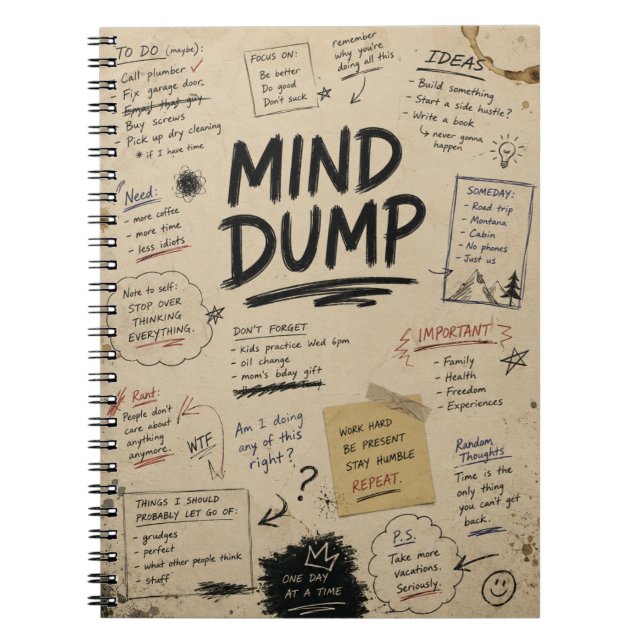 TO DO (maybe):
- Call plumber ✓
- Fix garage door.
- Email that guy
- Buy screws
- Pick up dry cleaning
* if I have time
FOCUS ON:
Be better
Do good
Don't suck
remember
why you're
doing all this
IDEAS
- Build something
- Start a side hustle?
- Write a book
never gonna
happen
MIND
DUMP
Need:
- more coffee
- more time
- less idiots
SOMEDAY:
- Road trip
- Montana
- Cabin
- No phones
- Just us
Note to self:
STOP OVER
THINKING
EVERYTHING.
DON'T FORGET
- kids practice Wed 6pm
- oil change
- mom's bday gift
IMPORTANT
- Family
- Health
- Freedom
- Experiences
Rant:
People don't
care about
anything
anymore.
WTF
Am I doing
any of this
right?
?
WORK HARD
BE PRESENT
STAY HUMBLE
REPEAT.
Random
Thoughts
Time is the
only thing
you can't get
back.
THINGS I SHOULD
PROBABLY LET GO OF:
- grudges
- perfect
- what other people think
- stuff
ONE DAY
AT A TIME
P.S.
Take more
vacations.
Seriously.